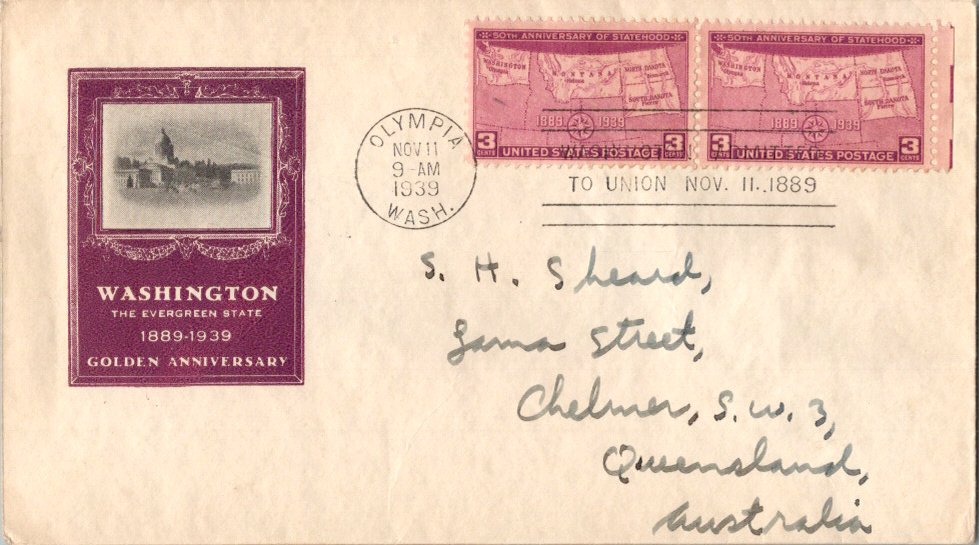 50TH ANNIVERSARY OF STATEHOOD
WASHINGTON
Olympia
MONTANA
Helena
NORTH DAKOTA
Bismarck
SOUTH DAKOTA
Pierre
1889 1939
3 CENTS UNITED STATES POSTAGE 3 CENTS
50TH ANNIVERSARY OF STATEHOOD
WASHINGTON
Olympia
MONTANA
Helena
NORTH DAKOTA
Bismarck
SOUTH DAKOTA
Pierre
1889 1939
3 CENTS UNITED STATES POSTAGE 3 CENTS
OLYMPIA
NOV 11
9-AM
1939
WASH.
TO UNION NOV. 11.,1889
WASHINGTON
THE EVERGREEN STATE
1889-1939
GOLDEN ANNIVERSARY
S. H. Sheard,
Street,
Chelmer, S.W. 3,
Queensland,
Australia